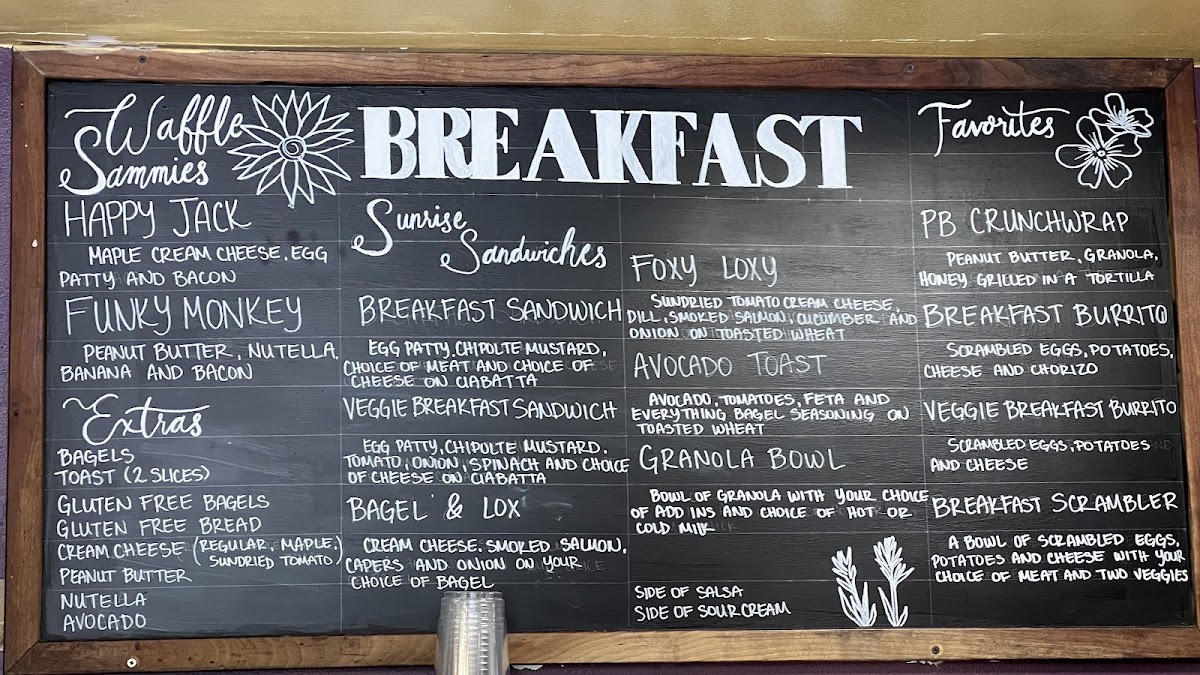 BREAKFAST
Waffle
Sammies
HAPPY JACK
MAPLE CREAM CHEESE, EGG
PATTY AND BACON
FUNKY MONKEY
PEANUT BUTTER, NUTELLA,
BANANA AND BACON
Extras
BAGELS
TOAST (2 SLICES)
GLUTEN FREE BAGELS
GLUTEN FREE BREAD
CREAM CHEESE (REGULAR, MAPLE,
SUNDRIED TOMATO)
PEANUT BUTTER
NUTELLA
AVOCADO
Sunrise
Sandwiches
BREAKFAST SANDWICH
EGG PATTY, CHIPOLTE MUSTARD,
CHOICE OF MEAT AND CHOICE OF
CHEESE ON CIABATTA
VEGGIE BREAKFAST SANDWICH
EGG PATTY, CHIPOLTE MUSTARD,
TOMATO, ONION, SPINACH AND CHOICE
OF CHEESE ON CIABATTA
BAGEL & LOX
CREAM CHEESE, SMOKED SALMON,
CAPERS AND ONION ON YOUR
CHOICE OF BAGEL
FOXY LOXY
SUNDRIED TOMATO CREAM CHEESE,
DILL, SMOKED SALMON, CUCUMBER AND
ONION ON TOASTED WHEAT
AVOCADO TOAST
AVOCADO, TOMATOES, FETA AND
EVERYTHING BAGEL SEASONING ON
TOASTED WHEAT
GRANOLA BOWL
BOWL OF GRANOLA WITH YOUR CHOICE
OF ADD INS AND CHOICE OF HOT OR
COLD MILK
SIDE OF SALSA
SIDE OF SOUR CREAM
Favorites
PB CRUNCHWRAP
PEANUT BUTTER, GRANOLA,
HONEY GRILLED IN A TORTILLA
BREAKFAST BURRITO
SCRAMBLED EGGS, POTATOES,
CHEESE AND CHORIZO
VEGGIE BREAKFAST BURRITO
SCRAMBLED EGGS, POTATOES
AND CHEESE
BREAKFAST SCRAMBLER
A BOWL OF SCRAMBLED EGGS,
POTATOES AND CHEESE WITH YOUR
CHOICE OF MEAT AND TWO VEGGIES